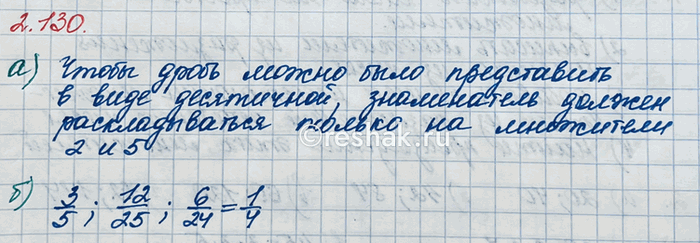 2.130.
а) Чтобы дробь можно было представить
в виде десятичной, знаменатель должен
раскладываться только на множители
2 и 5
б) 3/5; 12/25; 6/24 = 1/4
©reshak.ru